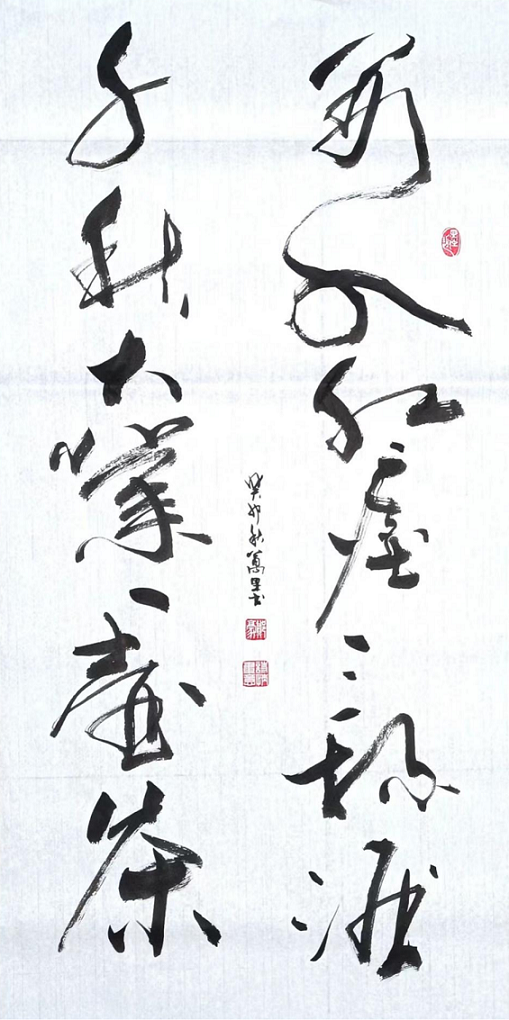 萬丈紅塵三杯酒
千秋大業一壺茶
癸卯秋萬里書